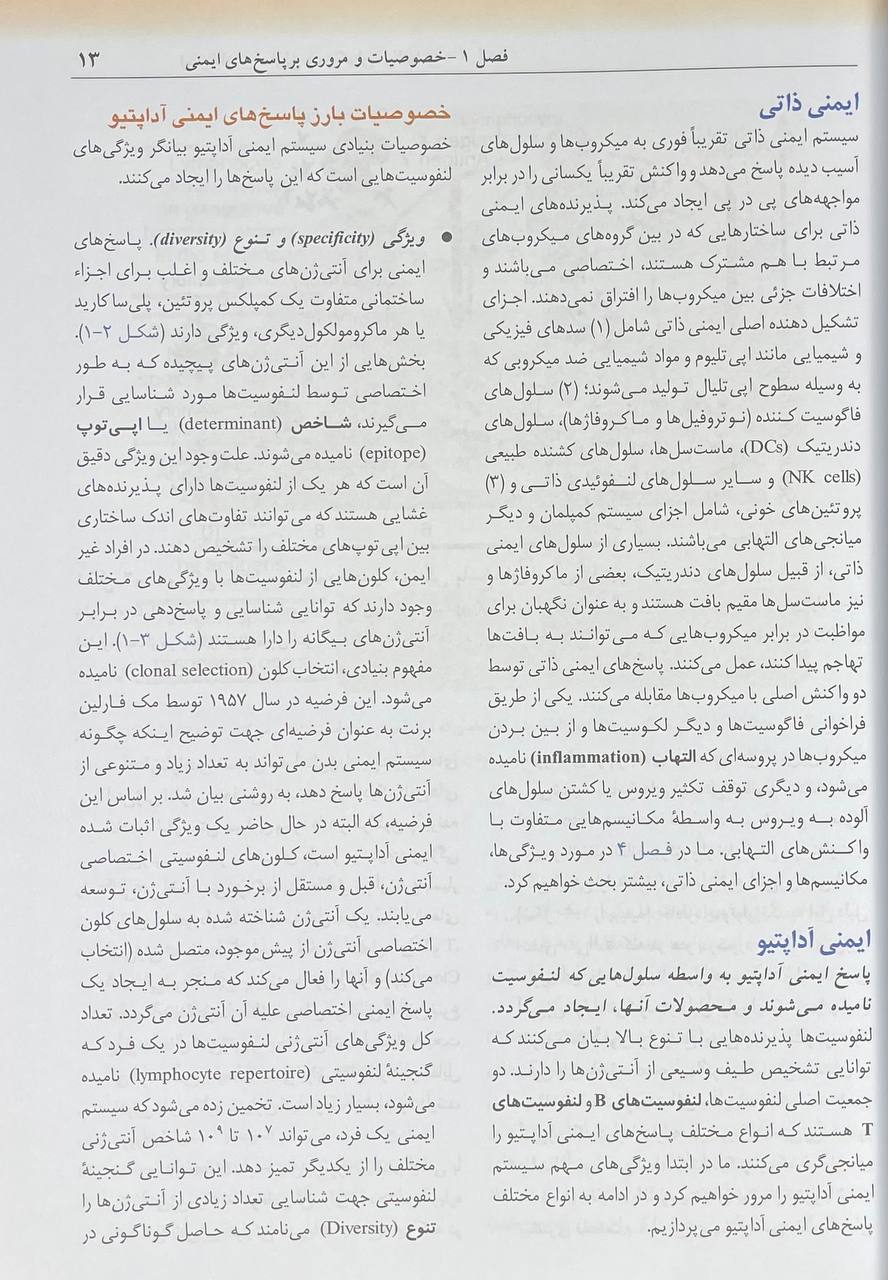 فصل ۱ - خصوصیات و مروری بر پاسخ‌های ایمنی ۱۳
ایمنی ذاتی
سیستم ایمنی ذاتی تقریباً فوری به میکروب‌ها و سلول‌های
آسیب دیده پاسخ می‌دهد و واکنش تقریباً یکسانی را در برابر
مواجهه‌های پی در پی ایجاد می‌کند. پذیرنده‌های ایمنی
ذاتی برای ساختارهایی که در بین گروه‌های میکروب‌های
مرتبط با هم مشترک هستند، اختصاصی می‌باشند و
اختلافات جزئی بین میکروب‌ها را افتراق نمی‌دهند. اجزای
تشکیل دهنده اصلی ایمنی ذاتی شامل (۱) سدهای فیزیکی
و شیمیایی مانند اپی‌تلیوم و مواد شیمیایی ضد میکروبی که
به وسیله سطوح اپی‌تلیال تولید می‌شوند؛ (۲) سلول‌های
فاگوسیت کننده (نوتروفیل‌ها و ماکروفاژها)، سلول‌های
دندریتیک (DCs)، ماست‌سل‌ها، سلول‌های کشنده طبیعی
(NK cells) و سایر سلول‌های لنفوئیدی ذاتی و (۳)
پروتئین‌های خونی، شامل اجزای سیستم کمپلمان و دیگر
میانجی‌های التهابی می‌باشند. بسیاری از سلول‌های ایمنی
ذاتی، از قبیل سلول‌های دندریتیک، بعضی از ماکروفاژها و
نیز ماست‌سل‌ها مقیم بافت هستند و به عنوان نگهبان برای
مواظبت در برابر میکروب‌هایی که می‌توانند به بافت‌ها
تهاجم پیدا کنند، عمل می‌کنند. پاسخ‌های ایمنی ذاتی توسط
دو واکنش اصلی با میکروب‌ها مقابله می‌کنند. یکی از طریق
فراخوانی فاگوسیت‌ها و دیگر لکوسیت‌ها و از بین بردن
میکروب‌ها در پروسه‌ای که التهاب (inflammation) نامیده
می‌شود، و دیگری توقف تکثیر ویروس یا کشتن سلول‌های
آلوده به ویروس به واسطهٔ مکانیسم‌هایی متفاوت با
واکنش‌های التهابی. ما در فصل ۴ در مورد ویژگی‌ها،
مکانیسم‌ها و اجزای ایمنی ذاتی، بیشتر بحث خواهیم کرد.
ایمنی آداپتیو
پاسخ ایمنی آداپتیو به واسطه سلول‌هایی که لنفوسیت
نامیده می‌شوند و محصولات آنها، ایجاد می‌گردد.
لنفوسیت‌ها پذیرنده‌هایی با تنوع بالا بیان می‌کنند که
توانایی تشخیص طیف وسیعی از آنتی‌ژن‌ها را دارند. دو
جمعیت اصلی لنفوسیت‌ها، لنفوسیت‌های B و لنفوسیت‌های
T هستند که انواع مختلف پاسخ‌های ایمنی آداپتیو را
میانجی‌گری می‌کنند. ما در ابتدا ویژگی‌های مهم سیستم
ایمنی آداپتیو را مرور خواهیم کرد و در ادامه به انواع مختلف
پاسخ‌های ایمنی آداپتیو می‌پردازیم.
خصوصیات بارز پاسخ‌های ایمنی آداپتیو
خصوصیات بنیادی سیستم ایمنی آداپتیو بیانگر ویژگی‌های
لنفوسیت‌هایی است که این پاسخ‌ها را ایجاد می‌کنند.
● ویژگی (specificity) و تنوع (diversity). پاسخ‌های
ایمنی برای آنتی‌ژن‌های مختلف و اغلب برای اجزاء
ساختمانی متفاوت یک کمپلکس پروتئین، پلی‌ساکارید
یا هر ماکرومولکول دیگری، ویژگی دارند (شکل ۲-۱).
بخش‌هایی از این آنتی‌ژن‌های پیچیده که به طور
اختصاصی توسط لنفوسیت‌ها مورد شناسایی قرار
می‌گیرند، شاخص (determinant) یا اپی‌توپ
(epitope) نامیده می‌شوند. علت وجود این ویژگی دقیق
آن است که هر یک از لنفوسیت‌ها دارای پذیرنده‌های
غشایی هستند که می‌توانند تفاوت‌های اندک ساختاری
بین اپی‌توپ‌های مختلف را تشخیص دهند. در افراد غیر
ایمن، کلون‌هایی از لنفوسیت‌ها با ویژگی‌های مختلف
وجود دارند که توانایی شناسایی و پاسخ‌دهی در برابر
آنتی‌ژن‌های بیگانه را دارا هستند (شکل ۳-۱). این
مفهوم بنیادی، انتخاب کلون (clonal selection) نامیده
می‌شود. این فرضیه در سال ۱۹۵۷ توسط مک فارلین
برنت به عنوان فرضیه‌ای جهت توضیح اینکه چگونه
سیستم ایمنی بدن می‌تواند به تعداد زیاد و متنوعی از
آنتی‌ژن‌ها پاسخ دهد، به روشنی بیان شد. بر اساس این
فرضیه، که البته در حال حاضر یک ویژگی اثبات شده
ایمنی آداپتیو است، کلون‌های لنفوسیتی اختصاصی
آنتی‌ژن، قبل و مستقل از برخورد با آنتی‌ژن، توسعه
می‌یابند. یک آنتی‌ژن شناخته شده به سلول‌های کلون
اختصاصی آنتی‌ژن از پیش‌موجود، متصل شده (انتخاب
می‌کند) و آنها را فعال می‌کند که منجر به ایجاد یک
پاسخ ایمنی اختصاصی علیه آن آنتی‌ژن می‌گردد. تعداد
کل ویژگی‌های آنتی‌ژنی لنفوسیت‌ها در یک فرد که
گنجینهٔ لنفوسیتی (lymphocyte repertoire) نامیده
می‌شود، بسیار زیاد است. تخمین زده می‌شود که سیستم
ایمنی یک فرد، می‌تواند ۱۰⁷ تا ۱۰⁹ شاخص آنتی‌ژنی
مختلف را از یکدیگر تمیز دهد. این توانایی گنجینهٔ
لنفوسیتی جهت شناسایی تعداد زیادی از آنتی‌ژن‌ها را
تنوع (Diversity) می‌نامند که حاصل گوناگونی در